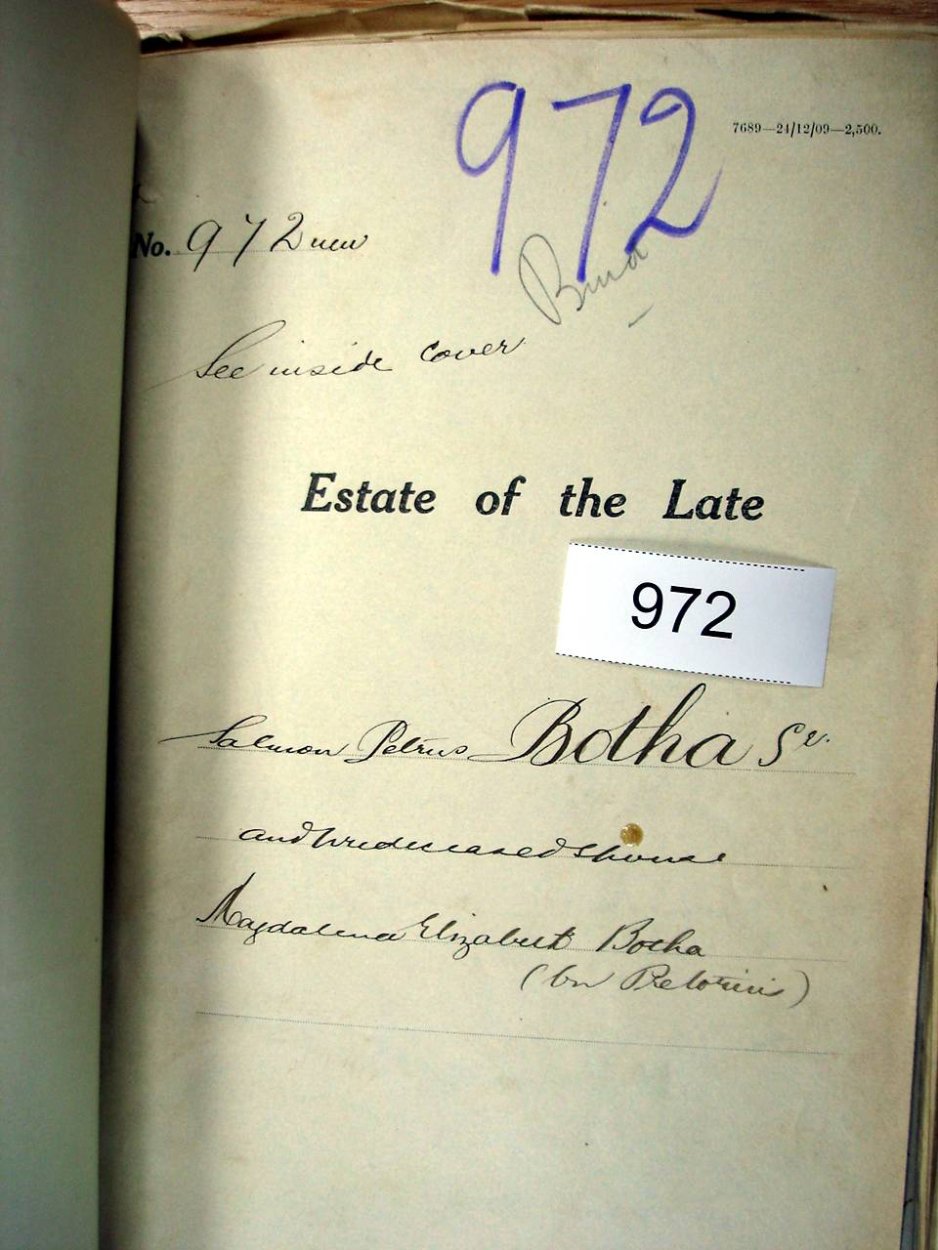 972
7689—24/12/09—2,500.
No. 972 new
Bind
See inside cover
Estate of the Late
972
Salmon Petrus Botha Sr.
and predeceased spouse
Magdalena Elizabeth Botha
(bn Pretorius)